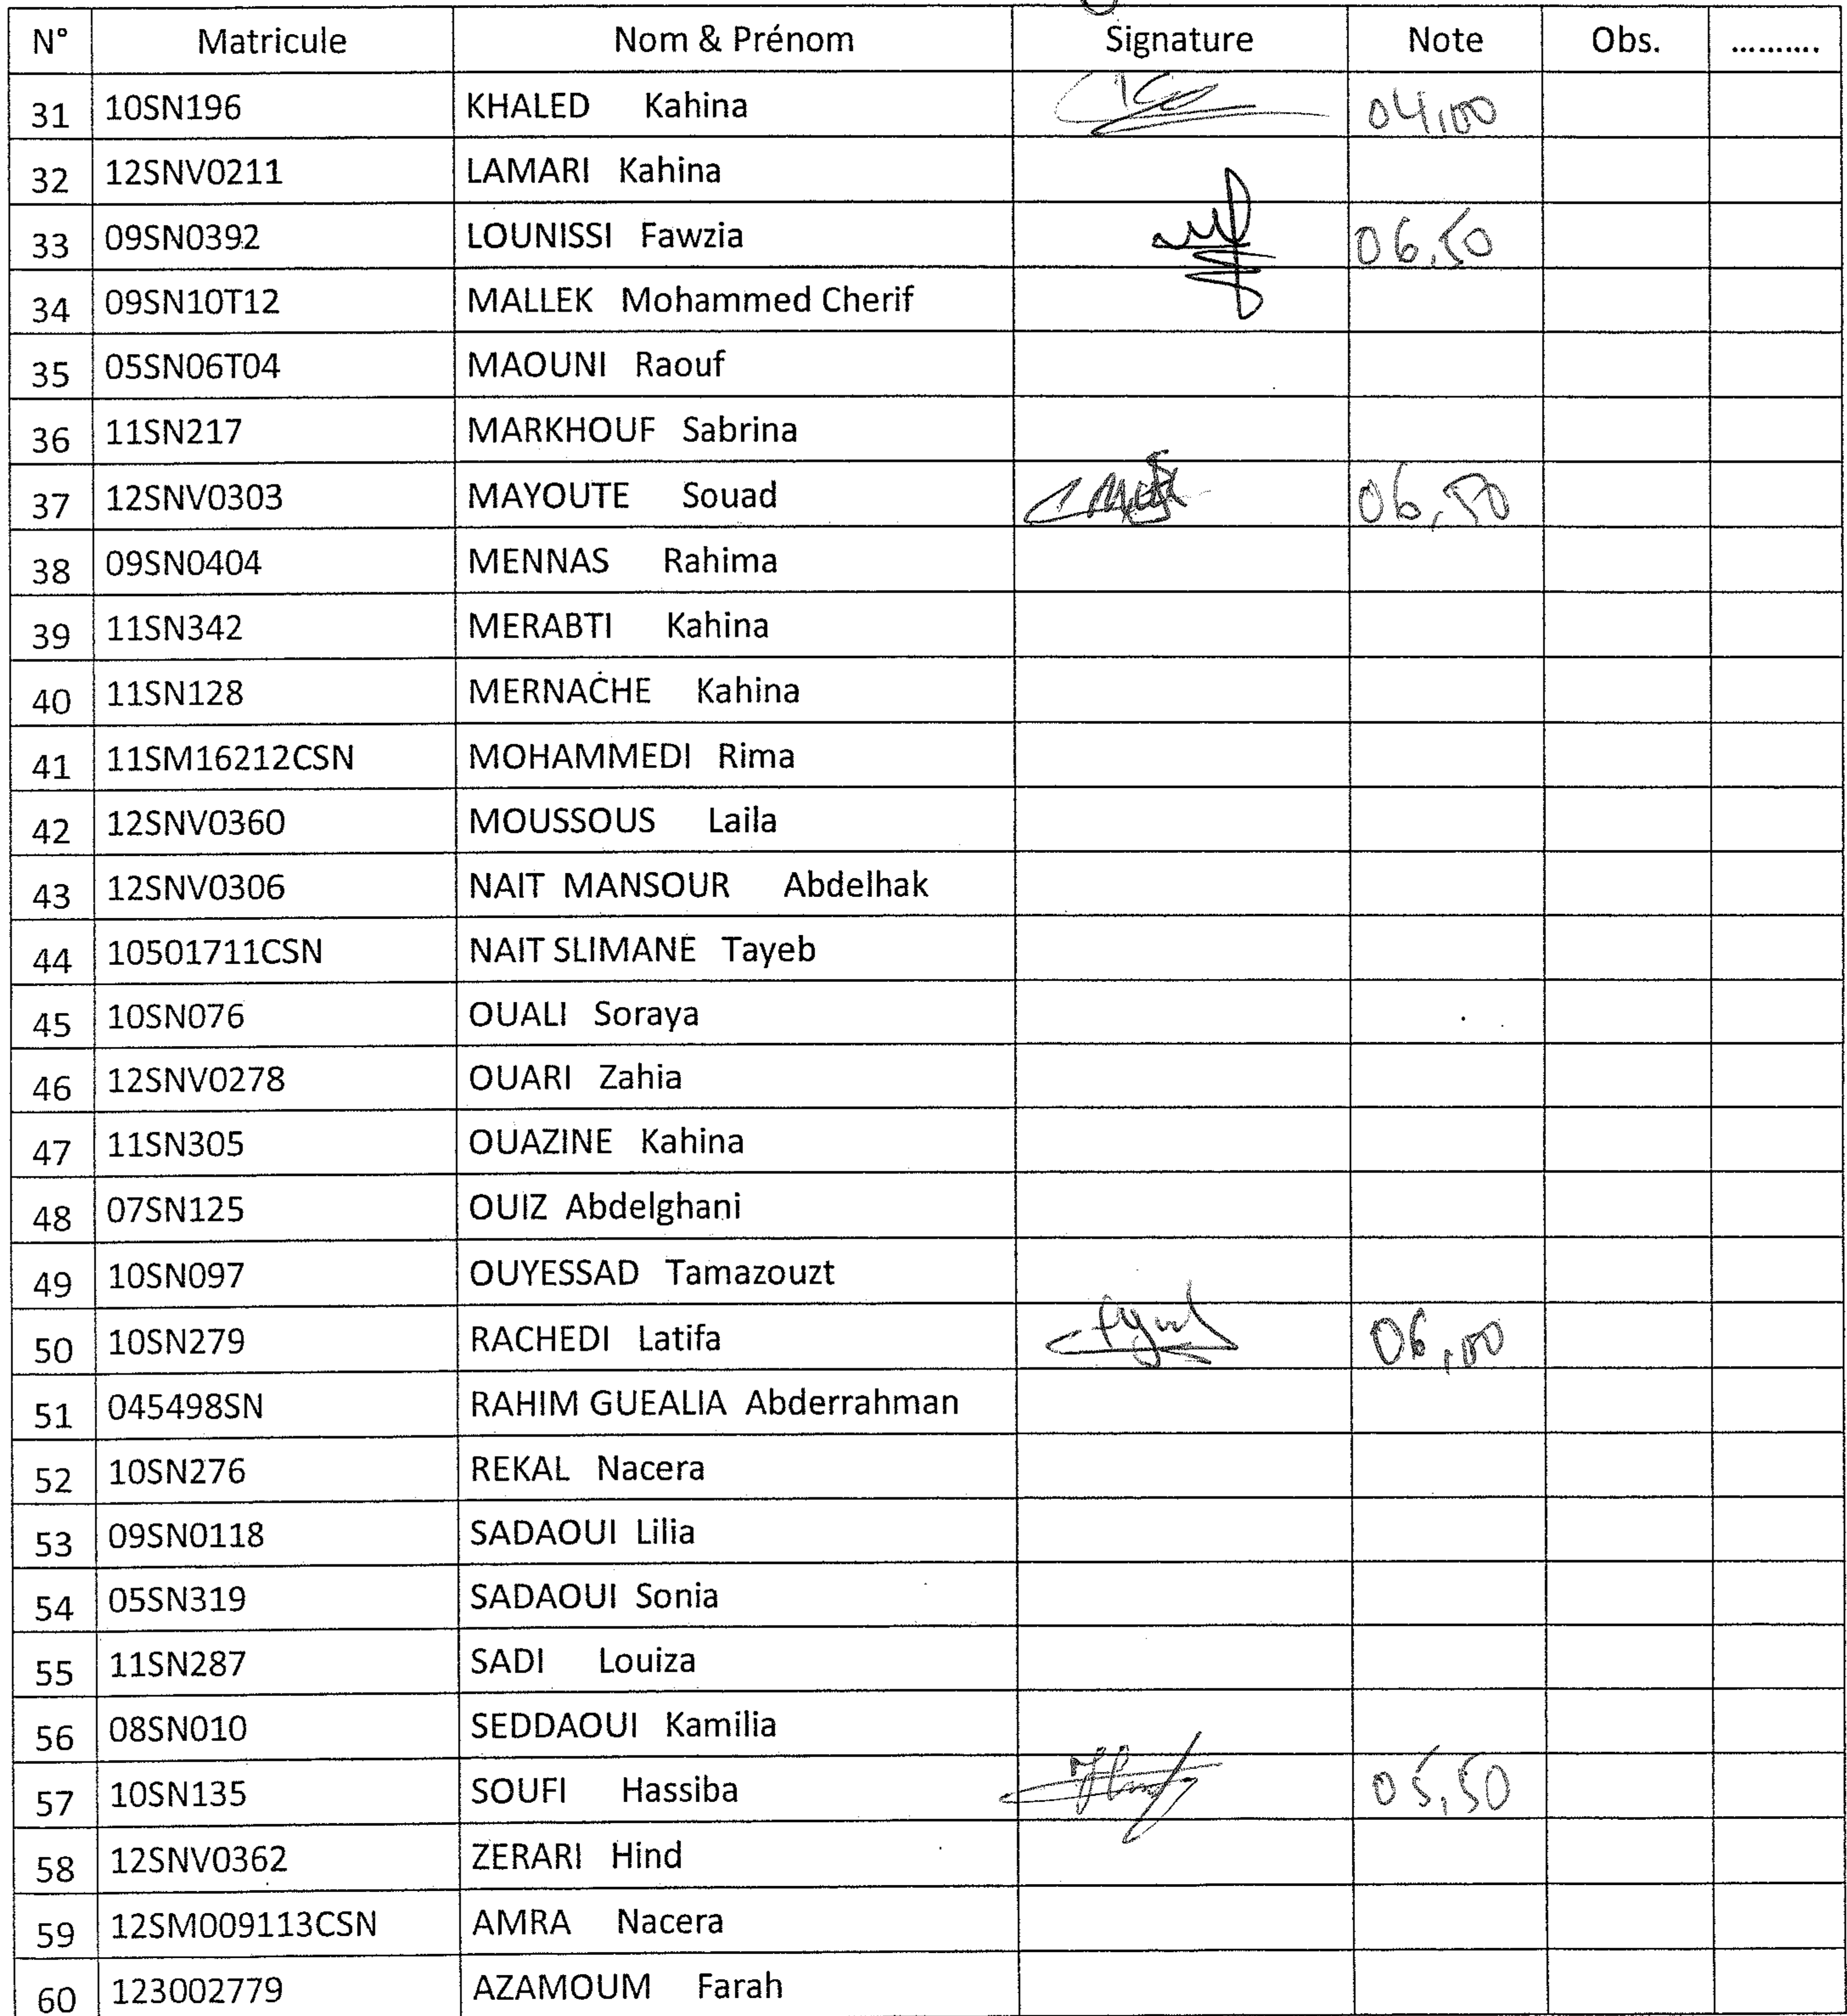 N° Matricule Nom & Prénom Signature Note Obs. ..........
31 10SN196 KHALED Kahina 04,00
32 12SNV0211 LAMARI Kahina
33 09SN0392 LOUNISSI Fawzia 06,50
34 09SN10T12 MALLEK Mohammed Cherif
35 05SN06T04 MAOUNI Raouf
36 11SN217 MARKHOUF Sabrina
37 12SNV0303 MAYOUTE Souad 06,50
38 09SN0404 MENNAS Rahima
39 11SN342 MERABTI Kahina
40 11SN128 MERNACHE Kahina
41 11SM16212CSN MOHAMMEDI Rima
42 12SNV0360 MOUSSOUS Laila
43 12SNV0306 NAIT MANSOUR Abdelhak
44 10501711CSN NAIT SLIMANE Tayeb
45 10SN076 OUALI Soraya
46 12SNV0278 OUARI Zahia
47 11SN305 OUAZINE Kahina
48 07SN125 OUIZ Abdelghani
49 10SN097 OUYESSAD Tamazouzt
50 10SN279 RACHEDI Latifa 06,00
51 045498SN RAHIM GUEALIA Abderrahman
52 10SN276 REKAL Nacera
53 09SN0118 SADAOUI Lilia
54 05SN319 SADAOUI Sonia
55 11SN287 SADI Louiza
56 08SN010 SEDDAOUI Kamilia
57 10SN135 SOUFI Hassiba 05,50
58 12SNV0362 ZERARI Hind
59 12SM009113CSN AMRA Nacera
60 123002779 AZAMOUM Farah